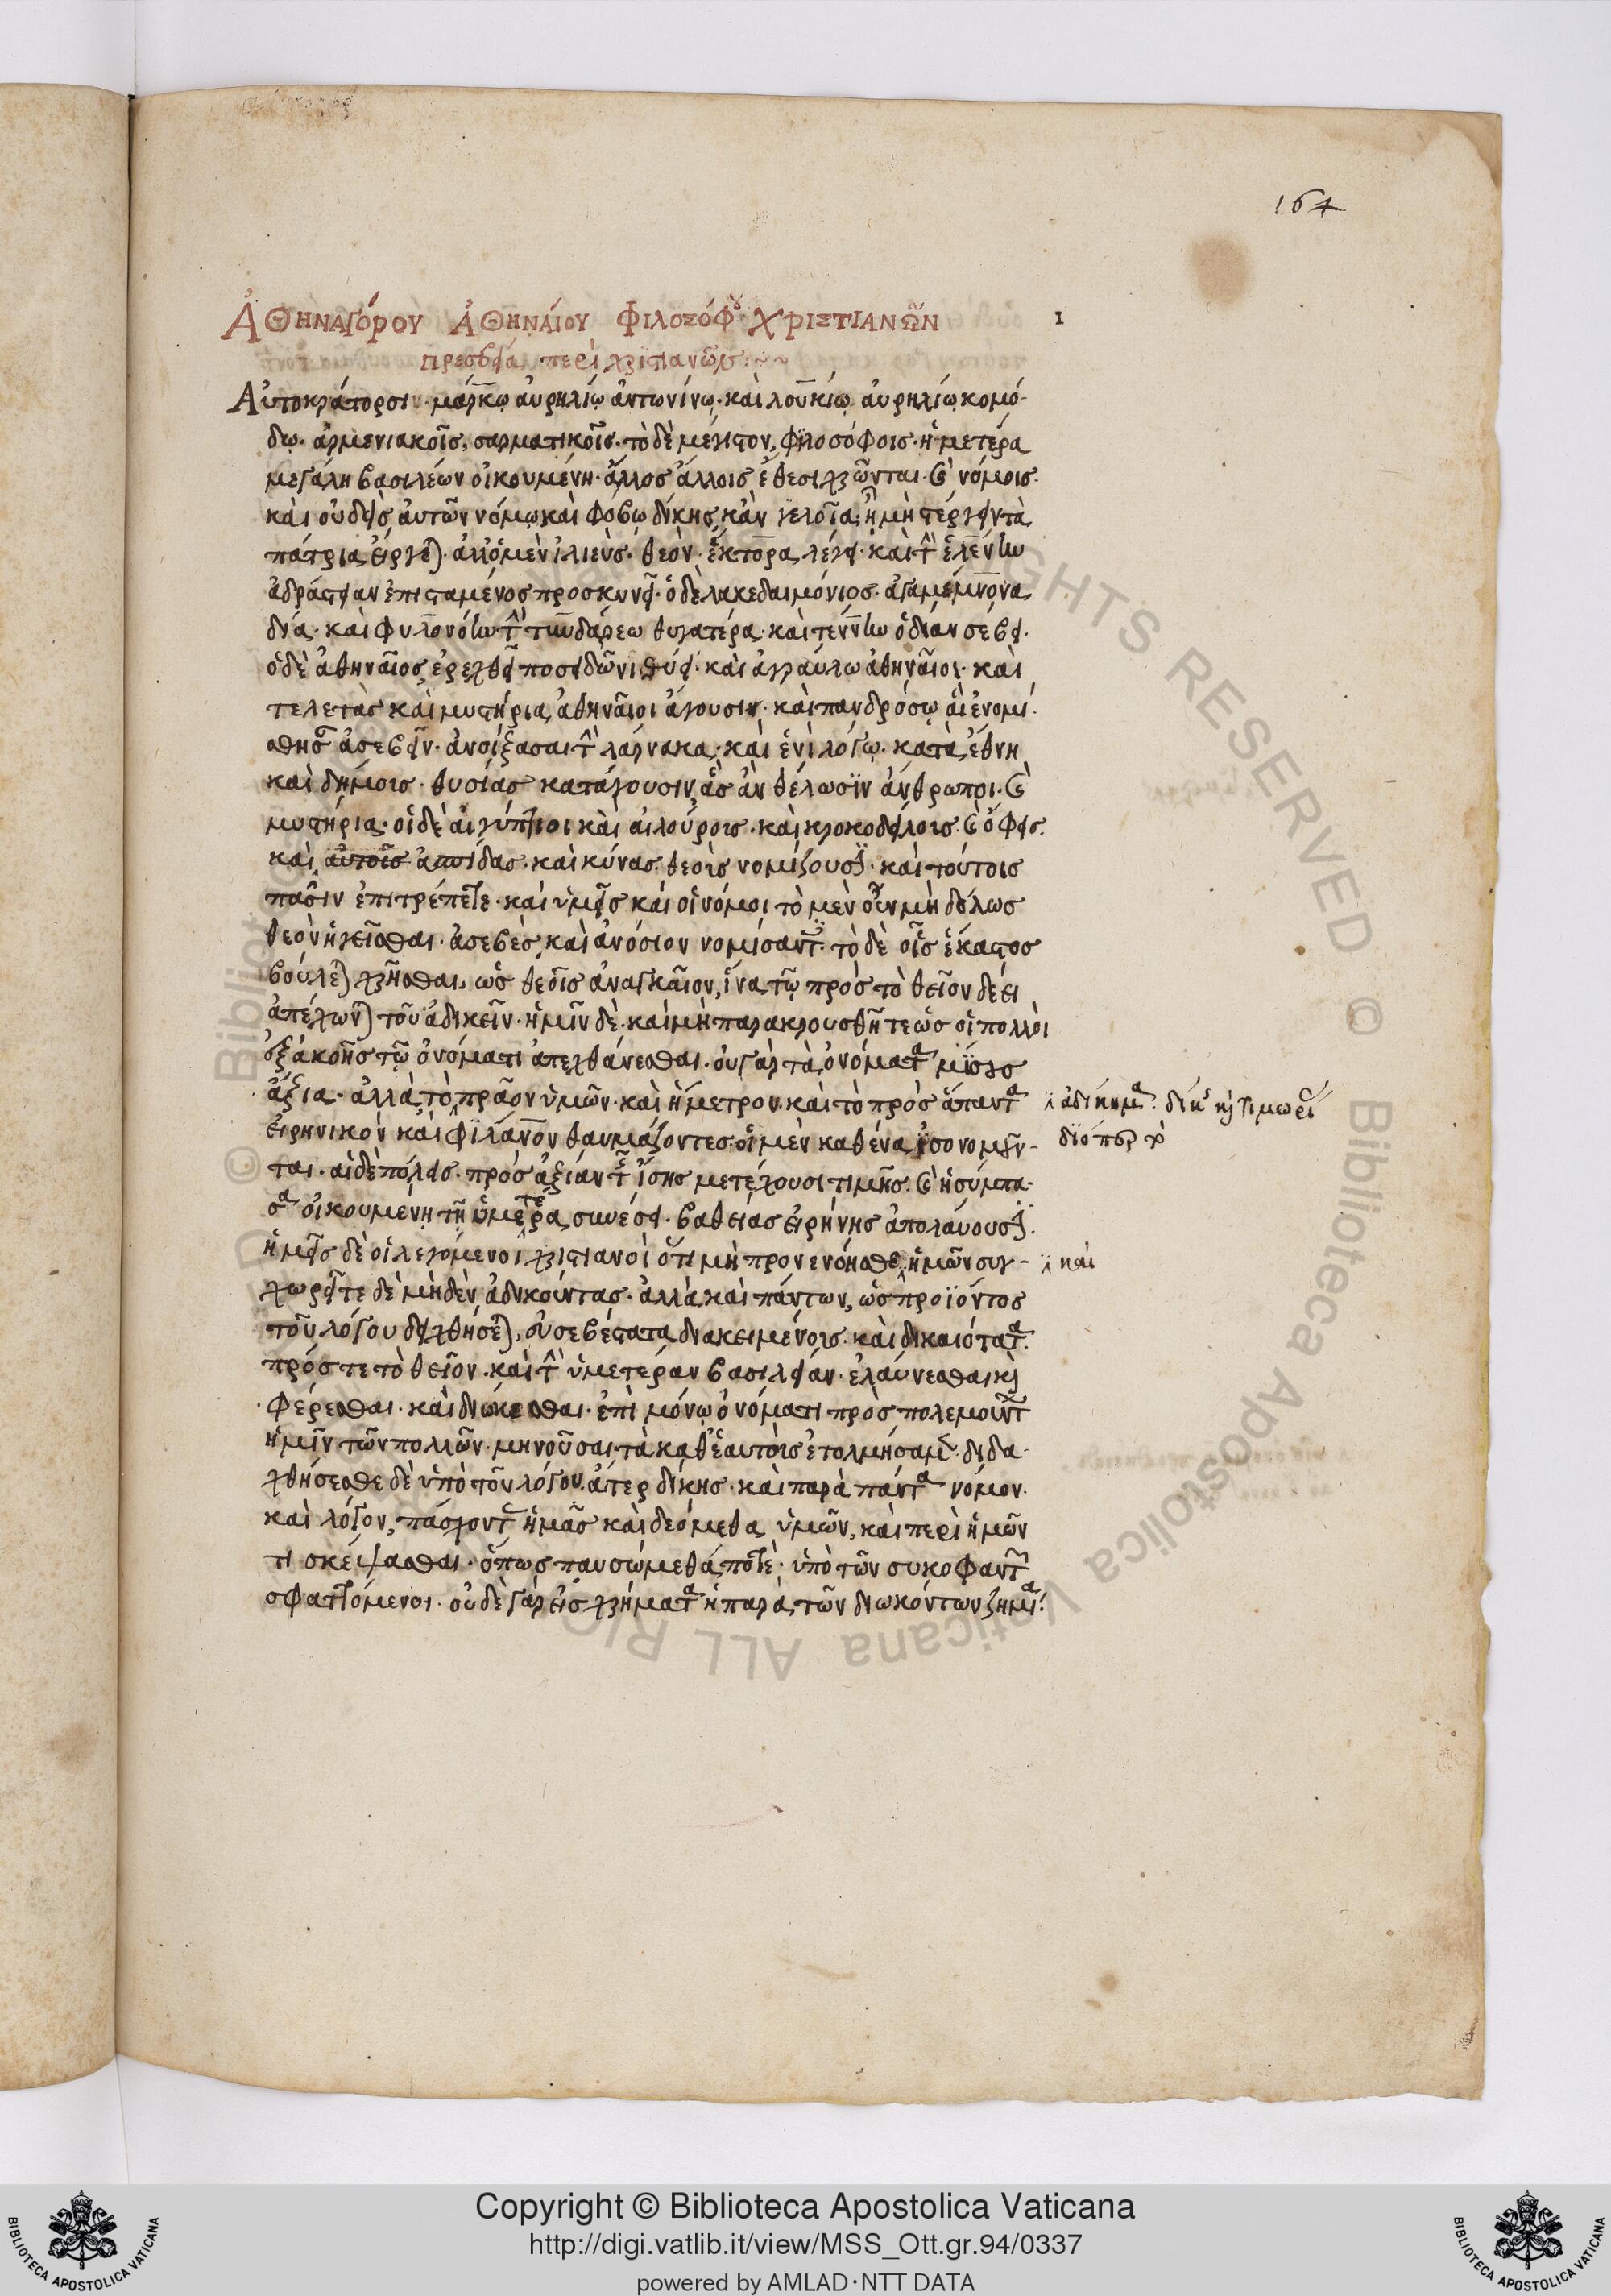 164
ἈΘΗΝΑΓΌΡΟΥ ἈΘΗΝΆΙΟΥ ΦΙΛΟΣΌΦΟΥ ΧΡΙΣΤΙΑΝΩ͂Ν
1
πρεσβεία περὶ χριστιανῶν :~~
Αὐτοκράτορσι· μάρκῳ αὐρηλίῳ ἀντωνίνῳ· καὶ λουκίῳ αὐρηλίῳ κομό-
δῳ· ἀρμενιακοῖς, σαρματικοῖς· τὸ δὲ μέγιστον, φιλοσόφοις· ἡ μετέρα
μεγάλη βασιλέων οἰκουμένη· ἄλλος ἄλλοις ἔθεσι χρῶνται· καὶ νόμοις·
καὶ οὐδεὶς αὐτῶν νόμῳ καὶ φόβῳ δίκης, κἂν γελοῖα ἦ μὴ στέργειν τὰ
πάτρια εἴργεται· ἀλλ' ὁ μὲν ἰλιεὺς· θεὸν ἕκτορα λέγει· καὶ τὴν ἑλένην
ἀδράστειαν ἐπιστάμενος προσκυνεῖ· ὁ δὲ λακεδαιμόνιος· ἀγαμέμνονα
δία· καὶ φυλονόην τὴν τυνδάρεω θυγατέρα· καὶ τεννην ὁδιαν σέβει·
ὁ δὲ ἀθηναῖος ἐρεχθεῖ ποσειδῶνι θύει· καὶ ἀγραύλω ἀθηναῖοι· καὶ
τελετὰς καὶ μυστήρια ἀθηναῖοι ἄγουσιν· καὶ πανδρόσῳ αἳ ἐνομί-
σθησαν ἀσεβεῖν· ἀνοίξασαι τὴν λάρνακα· καὶ ἑνὶ λόγῳ· κατὰ ἔθνη
καὶ δήμοις· θυσίας κατάγουσιν, ἃς ἂν θέλωσιν ἄνθρωποι· καὶ
μυστήρια· οἱ δὲ αἰγύπτιοι καὶ αἰλούροις· καὶ κροκοδείλοις· καὶ ὄφεις·
καὶ αὐτοῖς ἀσπίδας· καὶ κύνας· θεοὺς νομίζουσιν· καὶ τούτοις
πᾶσιν ἐπιτρέπετε· καὶ ὑμεῖς καὶ οἱ νόμοι τὸ μὲν οὖν μὴ δόλως
θεὸν ἡγεῖσθαι· ἀσεβὲς καὶ ἀνόσιον νομίσαντες· τὸ δὲ οἷς ἕκαστος
βούλεται χρῆσθαι, ὡς θεοῖς ἀναγκαῖον, ἵνα τῷ πρὸς τὸ θεῖον δέει
ἀπέχωνται τοῦ ἀδικεῖν· ἡμῖν δὲ· καὶ μὴ παρακρουσθῆτε ὡς οἱ πολλοὶ
ἐξ ἀκοῆς τῷ ὀνόματι ἀπεχθάνεσθαι· οὐ γὰρ τὰ ὀνόματα μίσους
ἄξια· ἀλλὰ τὸ πρᾶον ὑμῶν· καὶ ἥμετρον καὶ τὸ πρὸς ἅπαντα
ἀδίκημα· δίκης καὶ τιμωρίας
εἰρηνικὸν καὶ φιλάνον θαυμάζοντες· οἱ μὲν καθένα ἰσονομοῦν-
διόπερ
ται· αἱ δὲ πόλεις· πρὸς ἀξίαν τῆς ἴσης μετέχουσι τιμῆς· καὶ ἡ σύμπα-
σα οἰκουμένη τῇ ὑμετέρα συνέσει· βαθείας εἰρήνης ἀπολαύουσιν·
ἡμεῖς δὲ οἱ λεγόμενοι χριστιανοὶ ὅτι μὴ προνενόησθε, ἡμῶν συγ-
καὶ
χωρεῖτε δὲ μηδὲν ἀδικοῦντας· ἀλλὰ καὶ πάντων, ὡς προϊόντος
τοῦ λόγου δειχθήσεται, εὐσεβέστατα διακειμένοις· καὶ δικαιότατα·
πρός τε τὸ θεῖον· καὶ τὴν ὑμετέραν βασιλείαν· ἐλαύνεσθαι καὶ
φέρεσθαι· καὶ διώκεσθαι· ἐπὶ μόνῳ ὀνόματι προσπολεμούντων
ἡμῖν τῶν πολλῶν· μηνοῦσαι τὰ καθ' ἑαυτοὺς ἐτολμήσαμεν· διδα-
χθήσεσθε δὲ ὑπὸ τοῦ λόγου ἄτερ δίκης· καὶ παρὰ πάντα νόμον·
καὶ λόγον, πάσχοντας ἡμᾶς καὶ δεόμεθα ὑμῶν, καὶ περὶ ἡμῶν
τι σκέψασθαι· ὅπως παυσώμεθά ποτε· ὑπὸ τῶν συκοφαντῶν
σφαττόμενοι· οὐδὲ γὰρ εἰς χρήματα ἡ παρὰ τῶν διωκόντων ζημία·
Copyright © Biblioteca Apostolica Vaticana
http://digi.vatlib.it/view/MSS_Ott.gr.94/0337
powered by AMLAD·NTT DATA
BIBLIOTECA APOSTOLICA VATICANA
BIBLIOTECA APOSTOLICA VATICANA
© Biblioteca Apostolica Vaticana ALL RIGHTS RESERVED